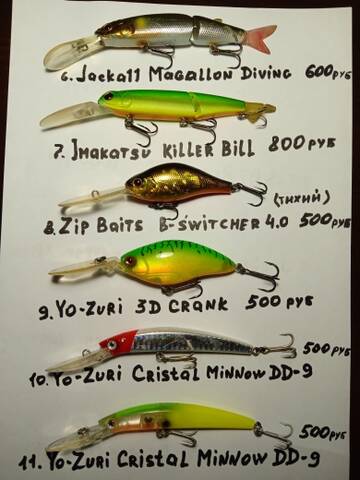 6. Jacka11 Magallon Diving 600 руб
7. Imakatsu Killer Bill 800 руб
(тихий)
8. Zip Baits B-Switcher 4.0 500 руб
9. Yo-Zuri 3D Crank 500 руб
500 руб
10. Yo-Zuri Cristal Minnow DD-9
500 руб
11. Yo-Zuri Cristal Minnow DD-9